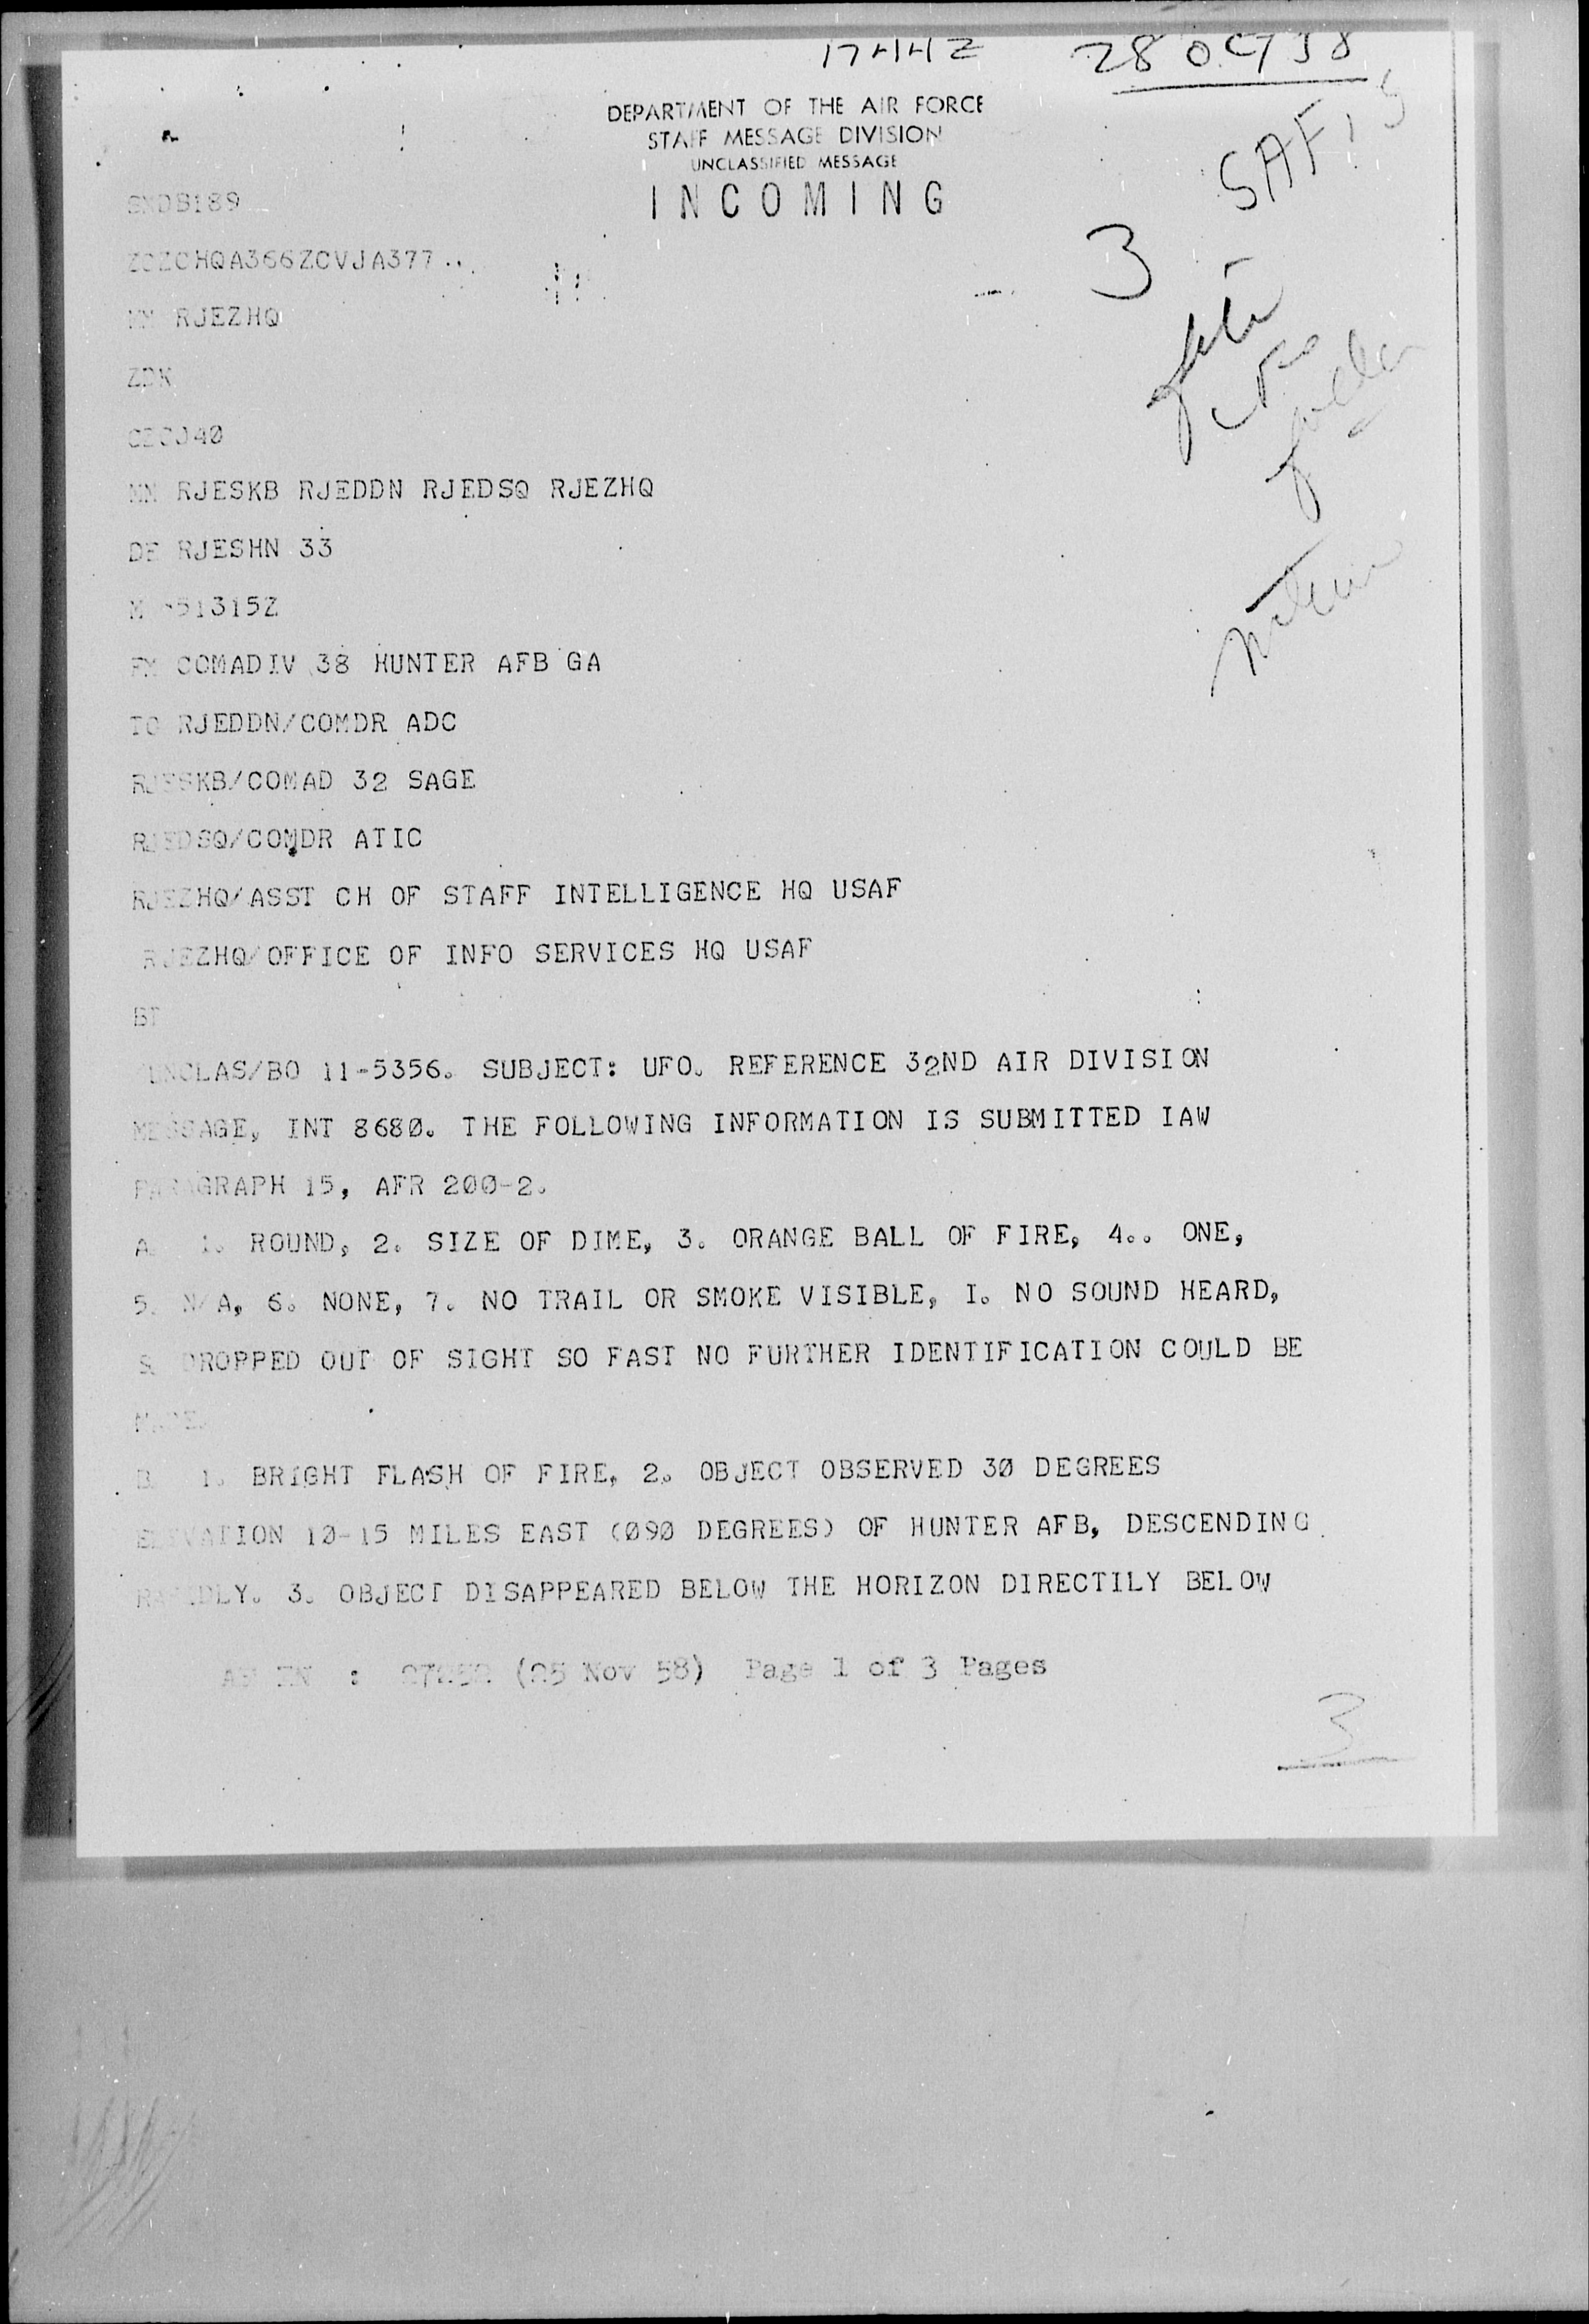 DEPARTMENT OF THE AIR FORCE
STAFF MESSAGE DIVISION
UNCLASSIFIED MESSAGE
INCOMING
SAFIS
3
ZCZCHQA366ZCVJA377..
MM RJEZHQ
ZDK
MM RJESKB RJEDDN RJEDSQ RJEZHQ
DE RJESHN 33
51315Z
FM COMADIV 38 HUNTER AFB GA
TO RJEDDN/COMDR ADC
RJESKB/COMAD 32 SAGE
RJEDSQ/COMDR ATIC
RJEZHQ/ASST CH OF STAFF INTELLIGENCE HQ USAF
RJEZHQ/OFFICE OF INFO SERVICES HQ USAF
BT
UNCLAS/BO 11-5356. SUBJECT: UFO. REFERENCE 32ND AIR DIVISION
MESSAGE, INT 8680. THE FOLLOWING INFORMATION IS SUBMITTED IAW
PARAGRAPH 15, AFR 200-2.
A. 1. ROUND, 2. SIZE OF DIME, 3. ORANGE BALL OF FIRE, 4.. ONE,
5. N/A, 6. NONE, 7. NO TRAIL OR SMOKE VISIBLE, I. NO SOUND HEARD,
DROPPED OUT OF SIGHT SO FAST NO FURTHER IDENTIFICATION COULD BE
MADE.
B. 1. BRIGHT FLASH OF FIRE, 2. OBJECT OBSERVED 30 DEGREES
ELEVATION 10-15 MILES EAST (090 DEGREES) OF HUNTER AFB, DESCENDING
RAPIDLY. 3. OBJECT DISAPPEARED BELOW THE HORIZON DIRECTILY BELOW
AF IN : (25 Nov 58) Page 1 of 3 Pages
3